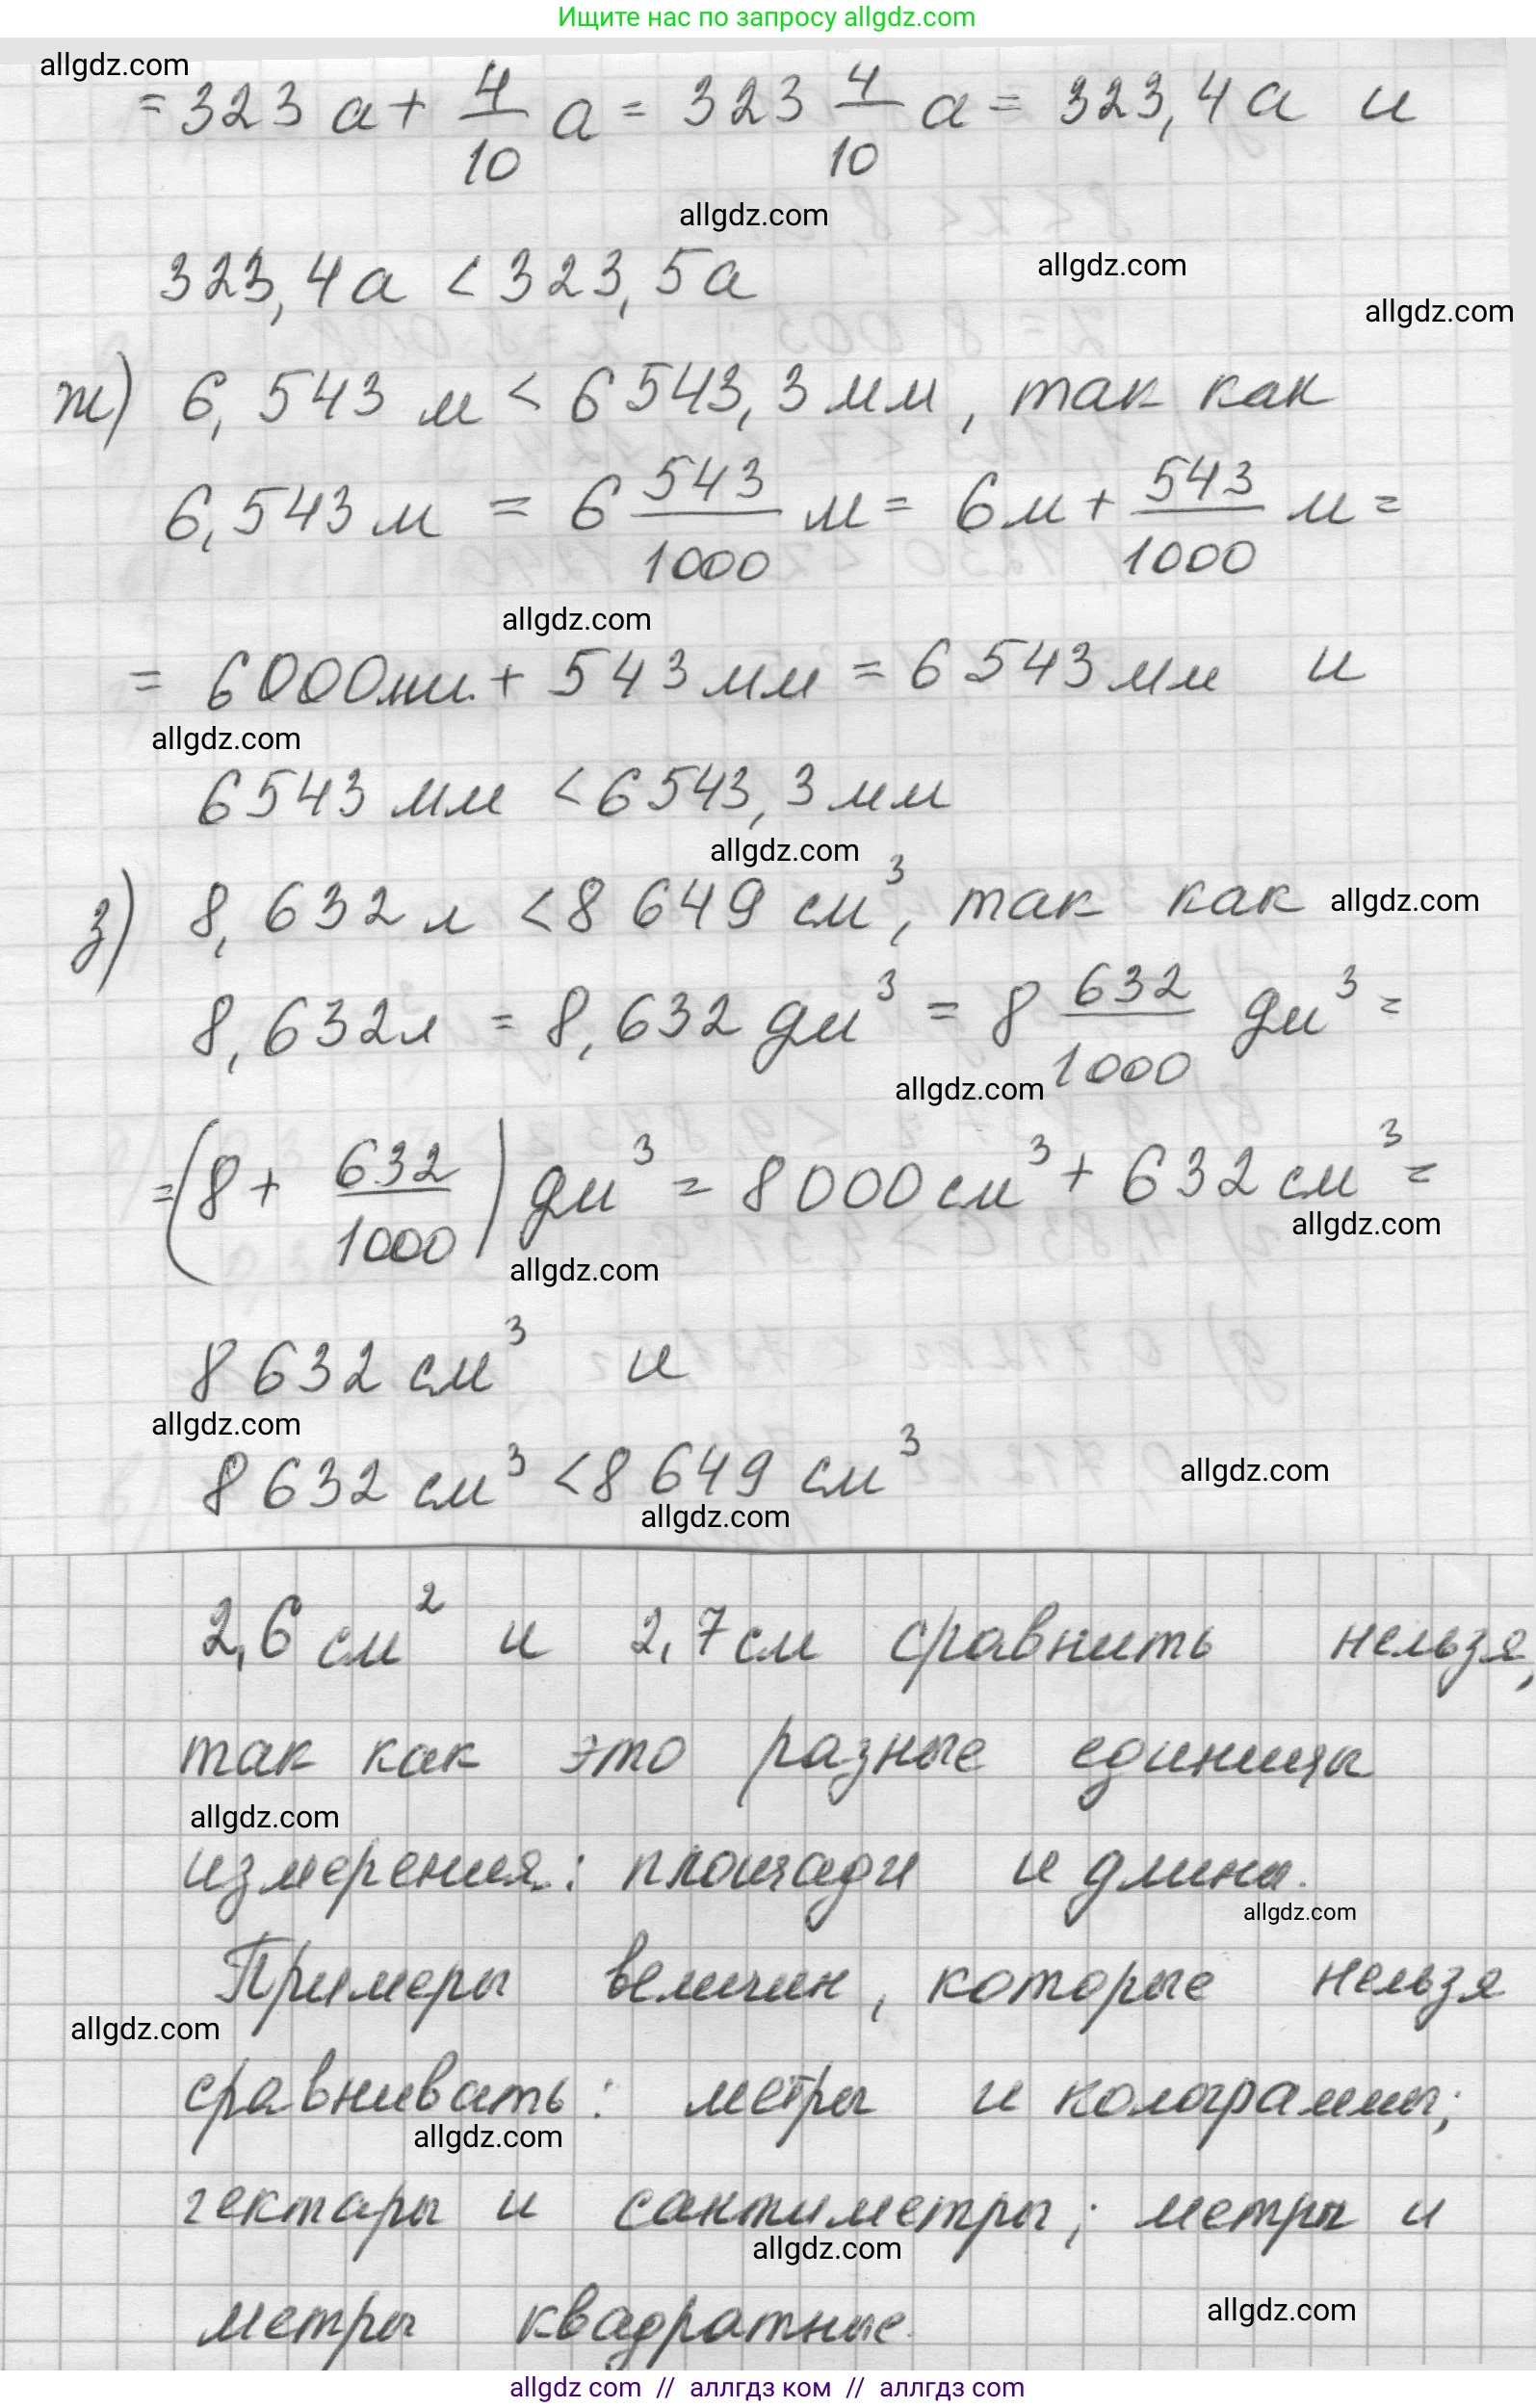 Ищите нас по запросу allgdz.com
allgdz.com
= 323 а + 4/10 а = 323 4/10 а = 323,4 а и
allgdz.com
323,4 а < 323,5 а
allgdz.com
allgdz.com
ж) 6,543 м < 6543,3 мм, так как
6,543 м = 6 543/1000 м = 6 м + 543/1000 м =
allgdz.com
= 6000 мм + 543 мм = 6543 мм и
allgdz.com
6543 мм < 6543,3 мм
allgdz.com
з) 8,632 л < 8 649 см³, так как
allgdz.com
8,632 л = 8,632 дм³ = 8 632/1000 дм³ =
allgdz.com
= (8 + 632/1000) дм³ = 8000 см³ + 632 см³ =
allgdz.com
allgdz.com
8632 см³ и
allgdz.com
8632 см³ < 8649 см³
allgdz.com
allgdz.com
2,6 см² и 2,7 см сравнить нельзя,
так как это разные единицы
allgdz.com
измерения: площади и длина.
allgdz.com
Примеры величин, которые нельзя
allgdz.com
сравнивать: метры и колограммы;
allgdz.com
гектары и сантиметры; метры и
allgdz.com
метры квадратные.
allgdz.com
allgdz com // аллгдз ком // аллгдз com